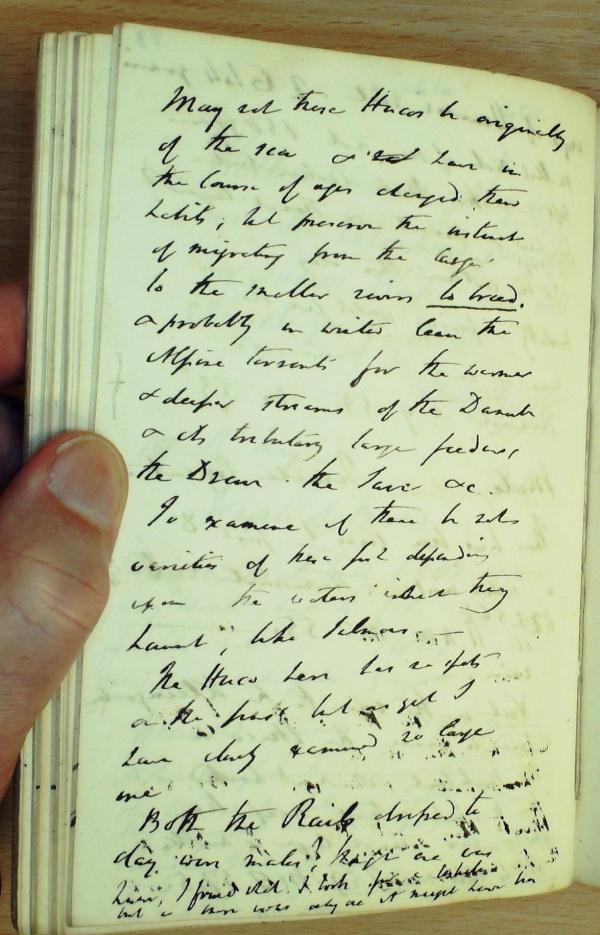 May not these Hucos be originally
of the sea & have in
the course of ages changed their
habits; but preserve the instinct
of migrating from the large
to the smaller rivers to breed.
& probably in winter leave the
Alpine torrents for the warmer
& deeper streams of the Danube
& its tributary large feeders,
the Drave the Save &c.
To examine if there be not
varieties of these fish depending
upon the waters which they
haunt, like Salmons.
The Huco here has no spots
on the but as yet I
have closely examined no large
one
Both the Rails dropped to
day were males,
I found that I took for a
but as there was only one it might have been